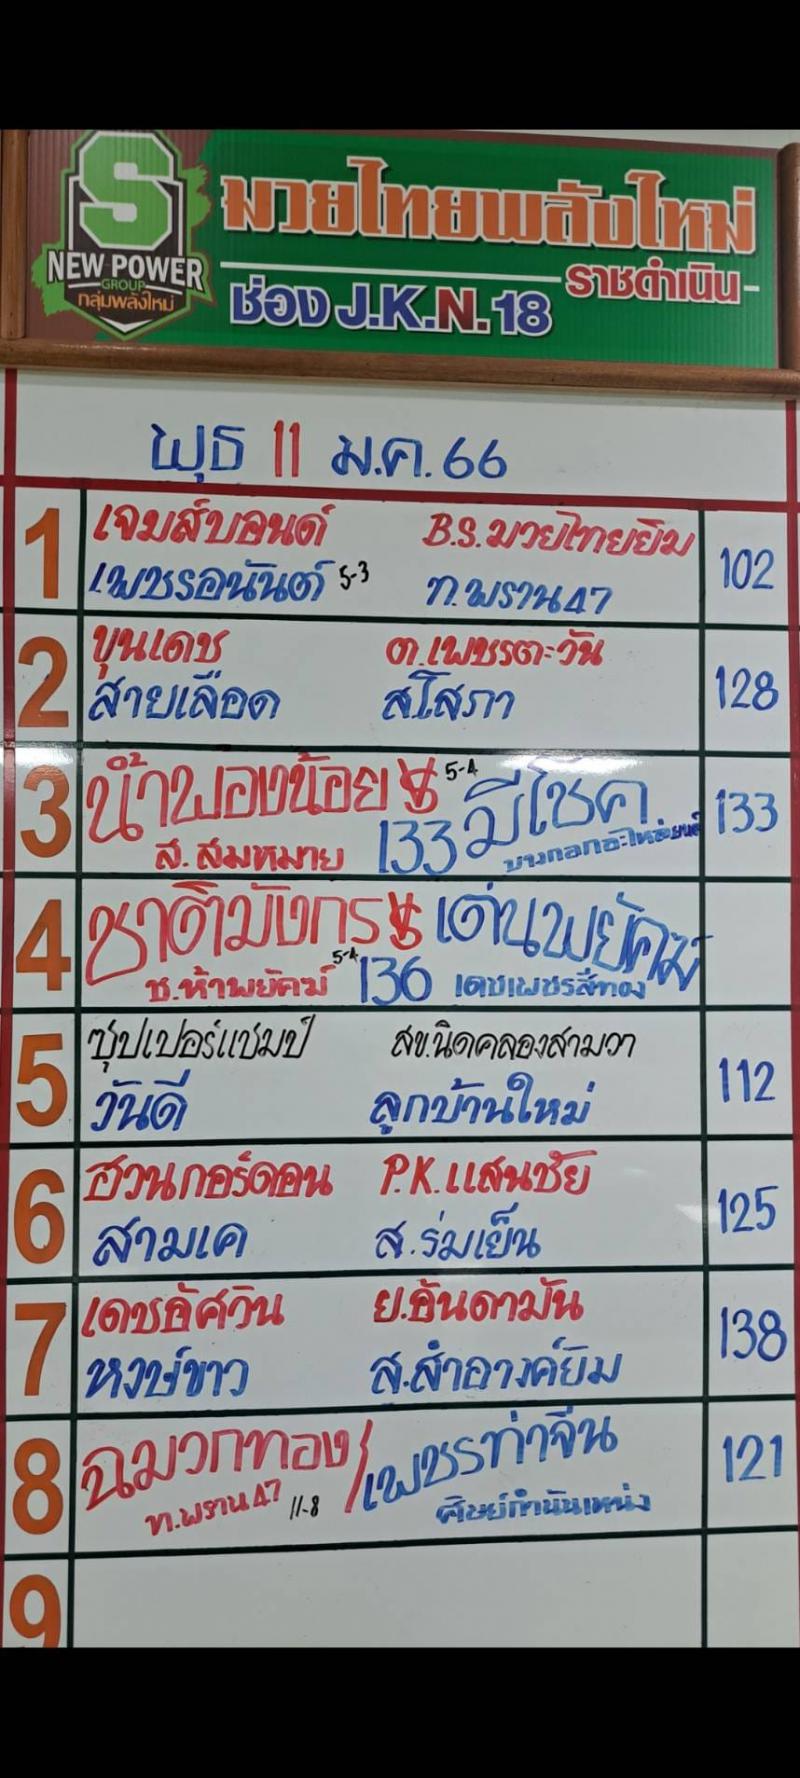 S
NEW POWER
GROUP
กลุ่มพลังใหม่
มวยไทยพลังใหม่
ราชดำเนิน
ช่อง J.K.N.18
พุธ 11 ม.ค. 66
1 เจมส์บอนด์ B.S.มวยไทยยิม 102
เพชรอนันต์ 5-3 ท.พราน47
2 ขุนเดช ต.เพชรตะวัน 128
สายเลือด ส.โสภา
3 น้ำพองน้อย 5-4 มีโชค 133
ส.สมหมาย 133 บางกอกอะไหล่ยนต์
4 ชาติมังกร เด่นพยัคฆ์
ช.ห้าพยัคฆ์ 5-4 136 เดชเพชรสีทอง
5 ซุปเปอร์แชมป์ สข.นิดคลองสามวา 112
วันดี ลูกบ้านใหม่
6 ฮวนกอร์ดอน P.K.แสนชัย 125
สามเค ส.ร่มเย็น
7 เดชอัศวิน ย.อันดามัน 138
หงษ์ขาว ส.สำอางค์ยิม
8 ฉมวกทอง/เพชรท่าจีน 121
ท.พราน47 11-8 ศิษย์กำนันเหน่ง
9